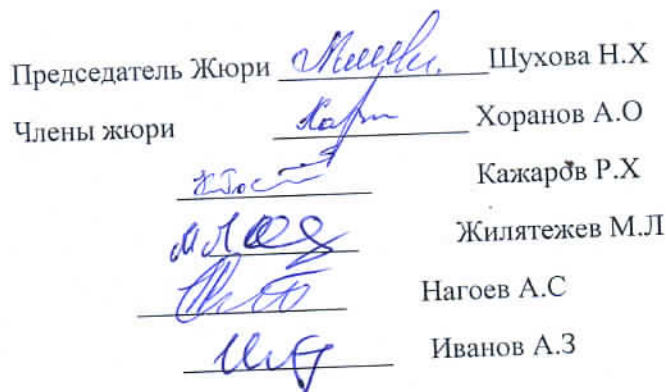 Председатель Жюри Шухова Н.Х
Члены жюри Хоранов А.О
Кажаров Р.Х
Жилятежев М.Л
Нагоев А.С
Иванов А.З